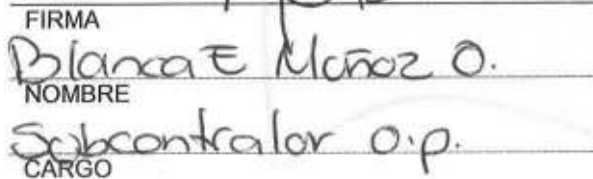 FIRMA
Blanca E Muñoz O.
NOMBRE
Subcontralor O.P.
CARGO